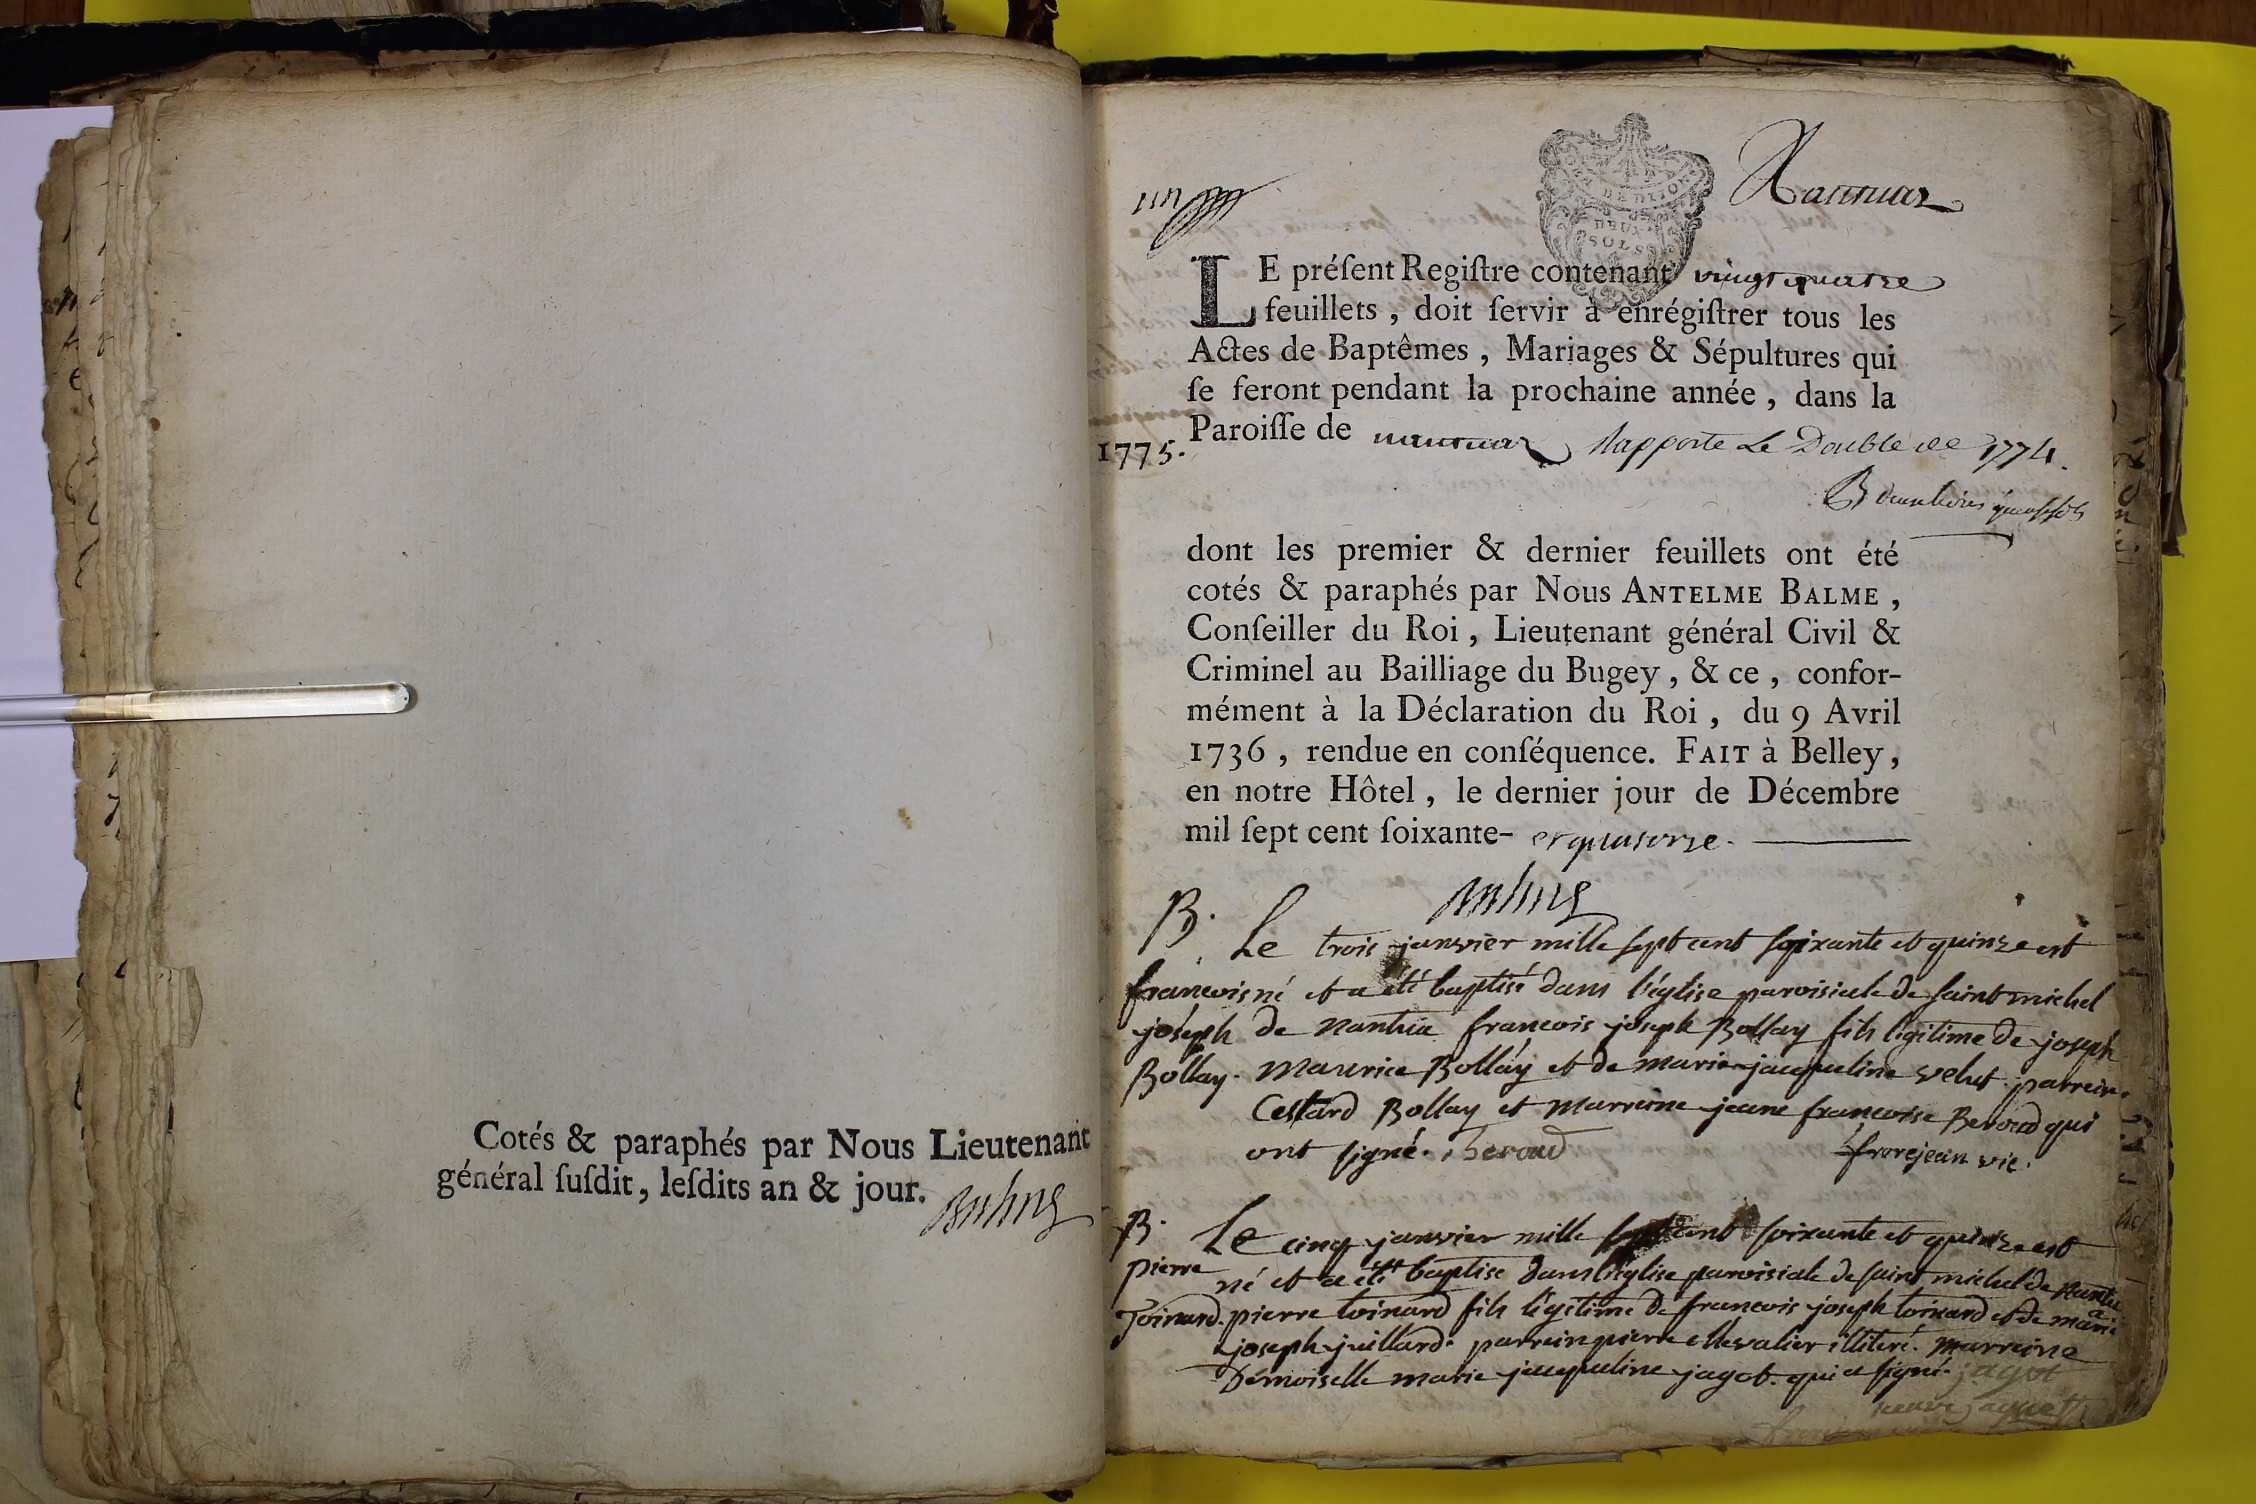 Cotés & paraphés par Nous Lieutenant
général ſuſdit, leſdits an & jour.
un
DEUX
SOLS
LE préſent Regiſtre contenant vingt quatre
feuillets, doit ſervir à enrégiſtrer tous les
Actes de Baptêmes, Mariages & Sépultures qui
ſe feront pendant la prochaine année, dans la
Paroiſſe de Rapporte Le Double de 1774.
1775.
dont les premier & dernier feuillets ont été
cotés & paraphés par Nous ANTELME BALME,
Conſeiller du Roi, Lieutenant général Civil &
Criminel au Bailliage du Bugey, & ce, confor-
mément à la Déclaration du Roi, du 9 Avril
1736, rendue en conſéquence. FAIT à Belley,
en notre Hôtel, le dernier jour de Décembre
mil ſept cent ſoixante- et quatorze.
B.
francois
joseph
Bollay.
Le trois janvier mille sept cent soixante et quinze est
né et a été baptisé dans l'église paroisiale de saint michel
de Nantua francois joseph Bollay fils légitime de joseph
Maurice Bollay et de marie jacqueline velut. parrein
Bollay et Marreine jeane francoise Beroud qui
ont signé. Beroud frerejean vic.
B.
pierre
Toinard.
Le cinq janvier mille sept cent soixante et quinze est
né et a été baptise dans l'église paroisiale de saint michel de Nantua
pierre toinard fils légitime de francois joseph toinard et de marie
joseph juillard. parrein pierre chevalier illiteré. Marreine
Démoiselle marie jacqueline jagot. qui a signé. jagot